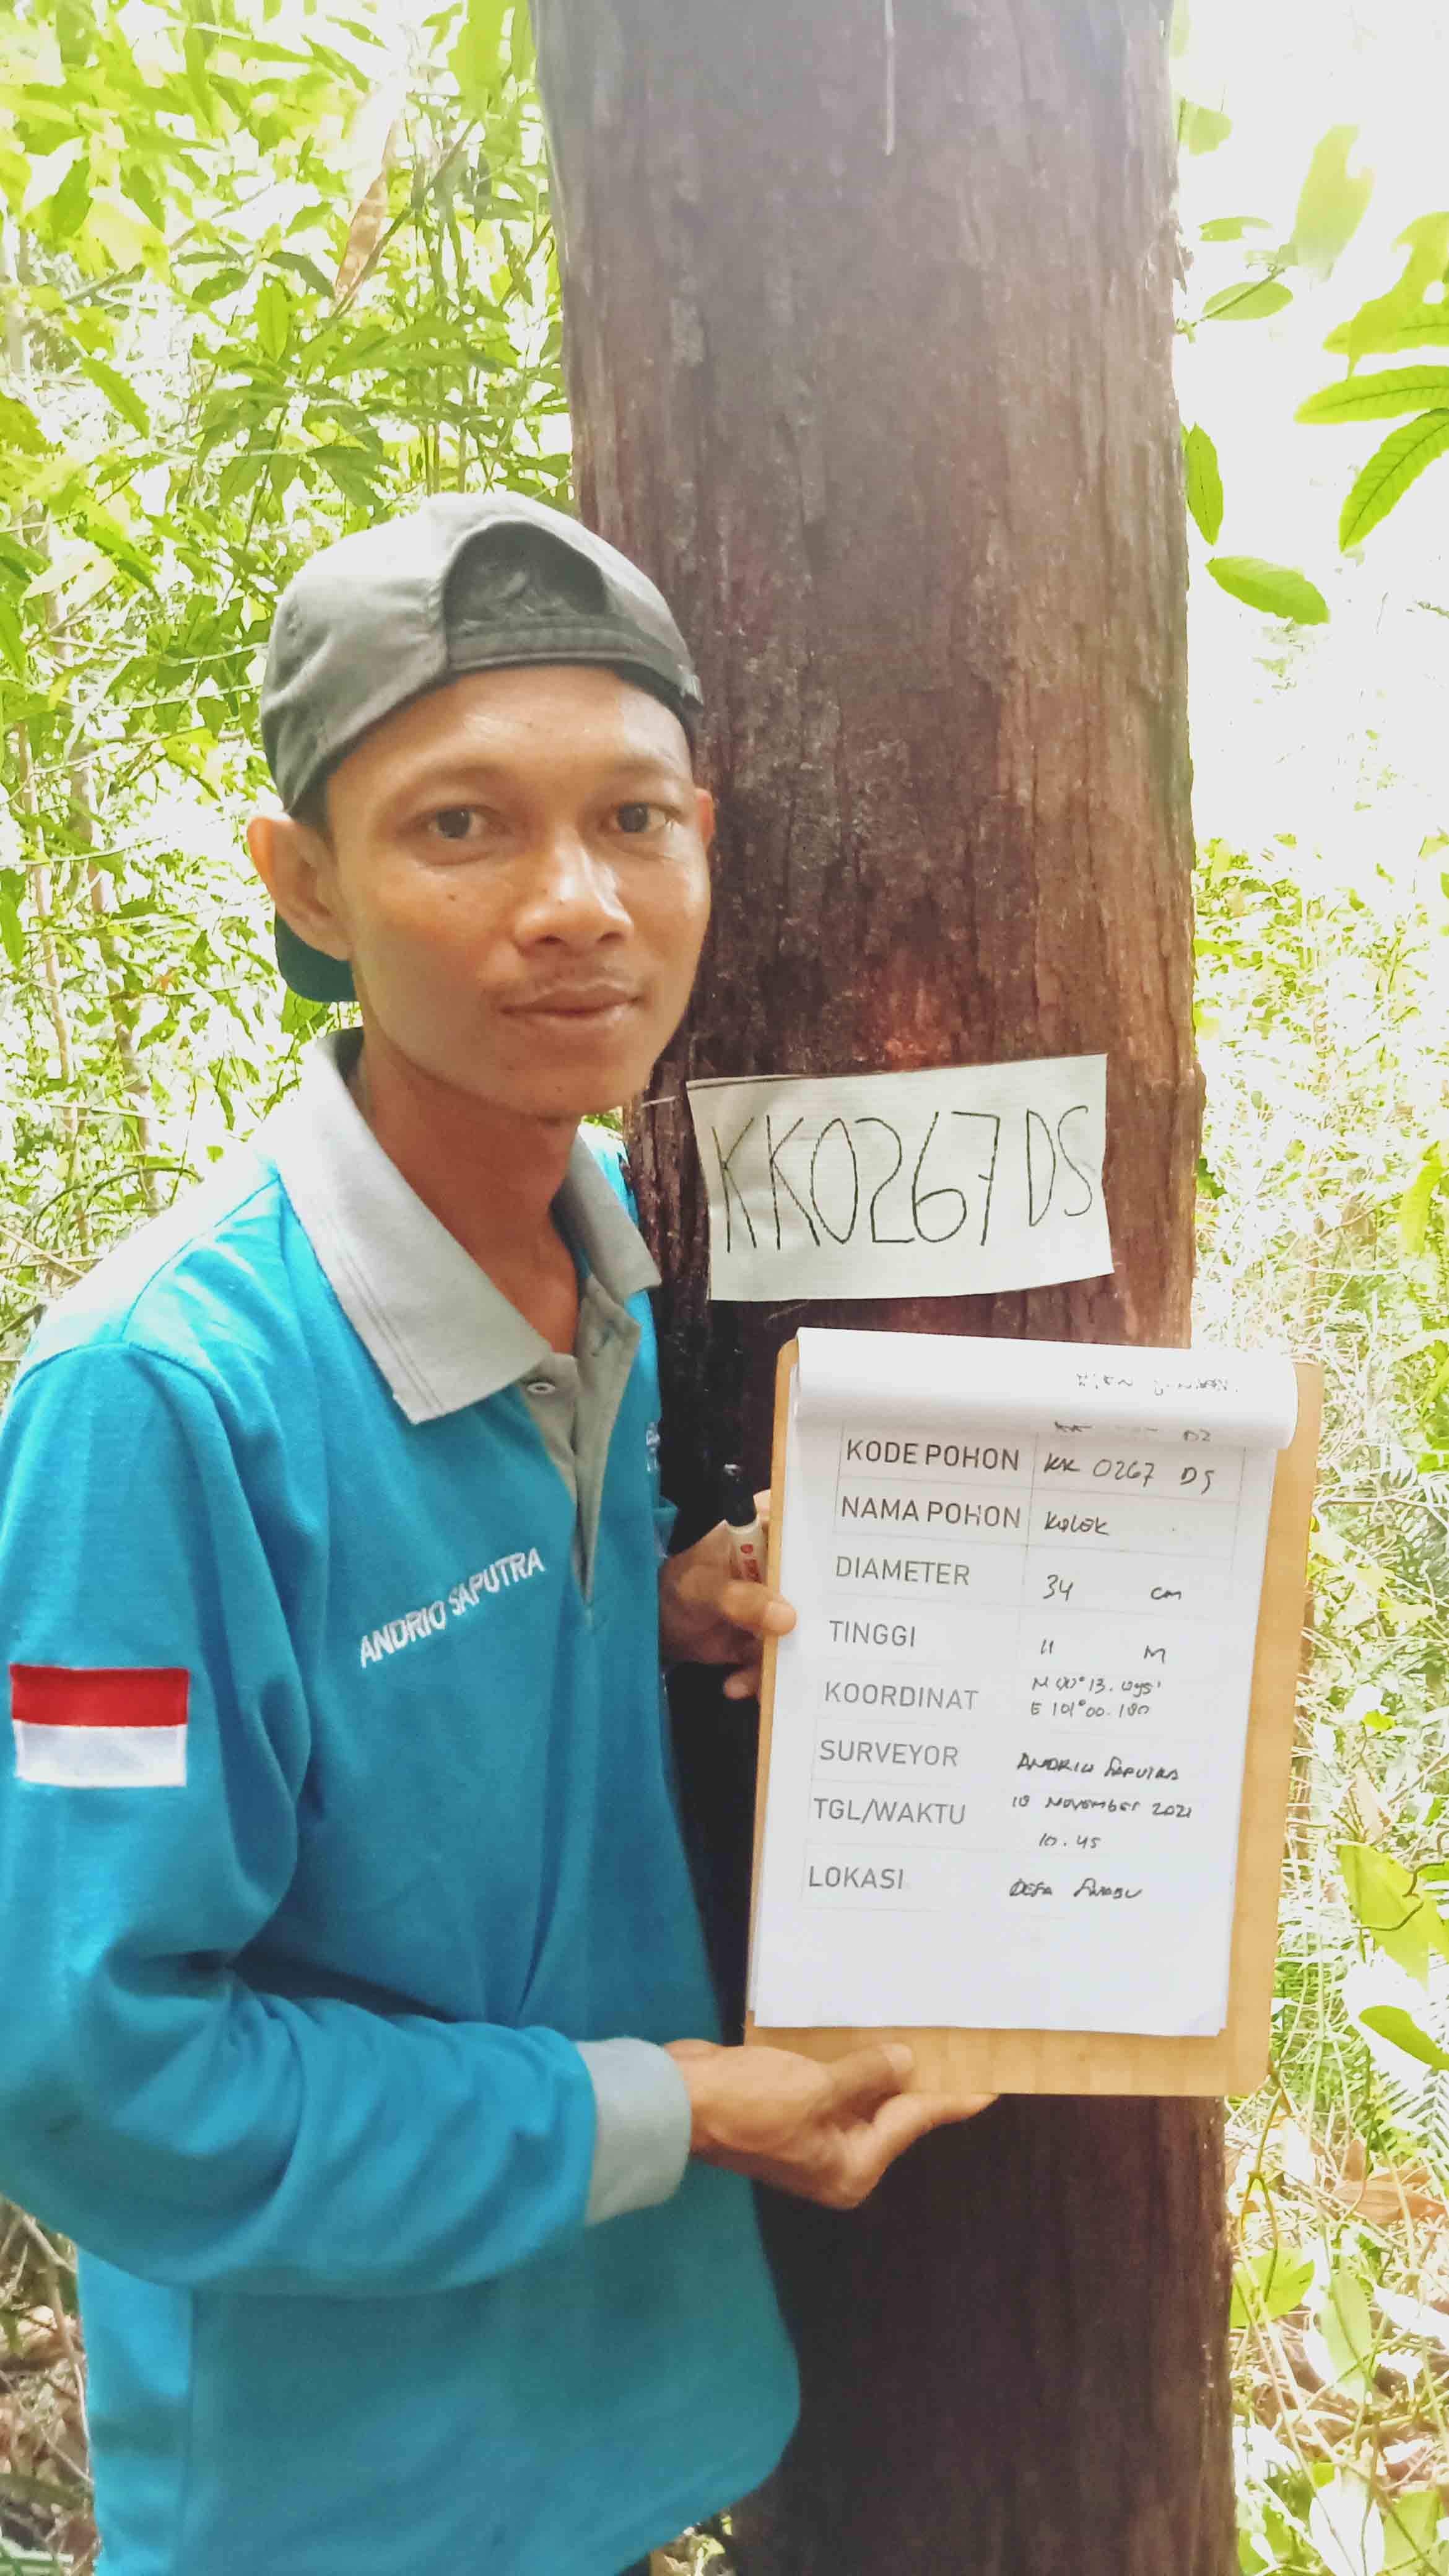 KK0267DS
KODE POHON KK 0267 DS
NAMA POHON KOLOK
DIAMETER 34 cm
TINGGI 11 M
KOORDINAT N 00° 13.
E 101° 00. 180
SURVEYOR ANDRIO SAPUTRA
TGL/WAKTU 18 NOVEMBER 2021
10.45
LOKASI DESA
ANDRIO SAPUTRA